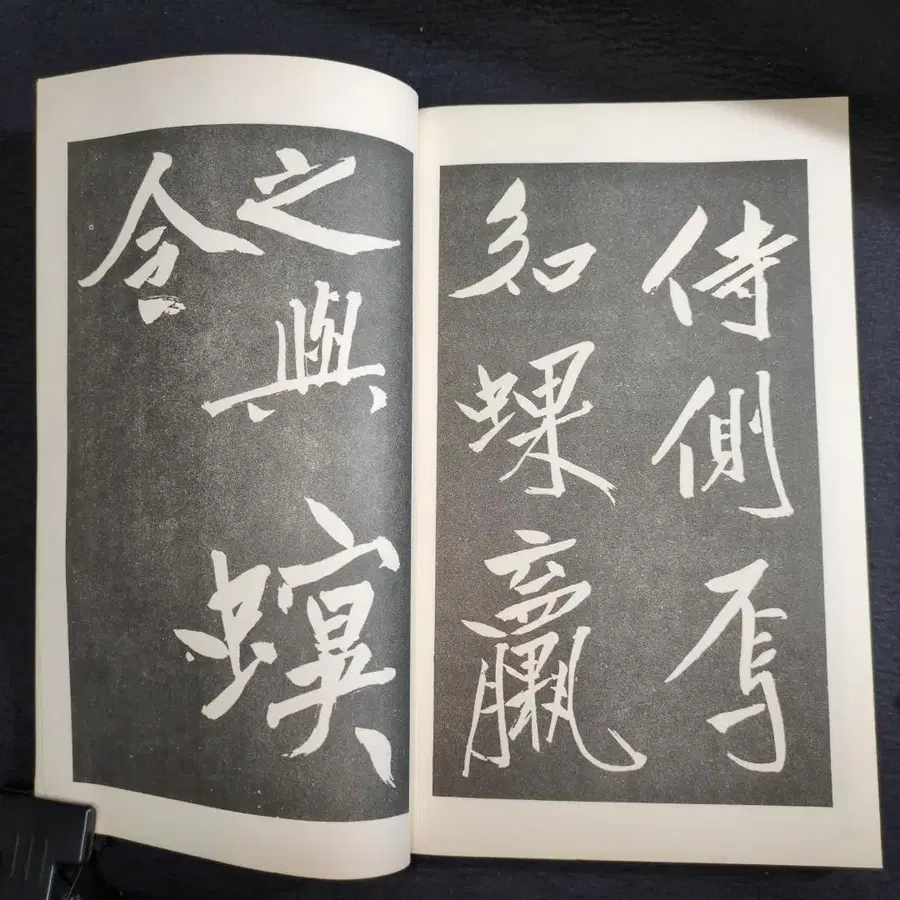 侍側焉
如蜾蠃
之與螟
令